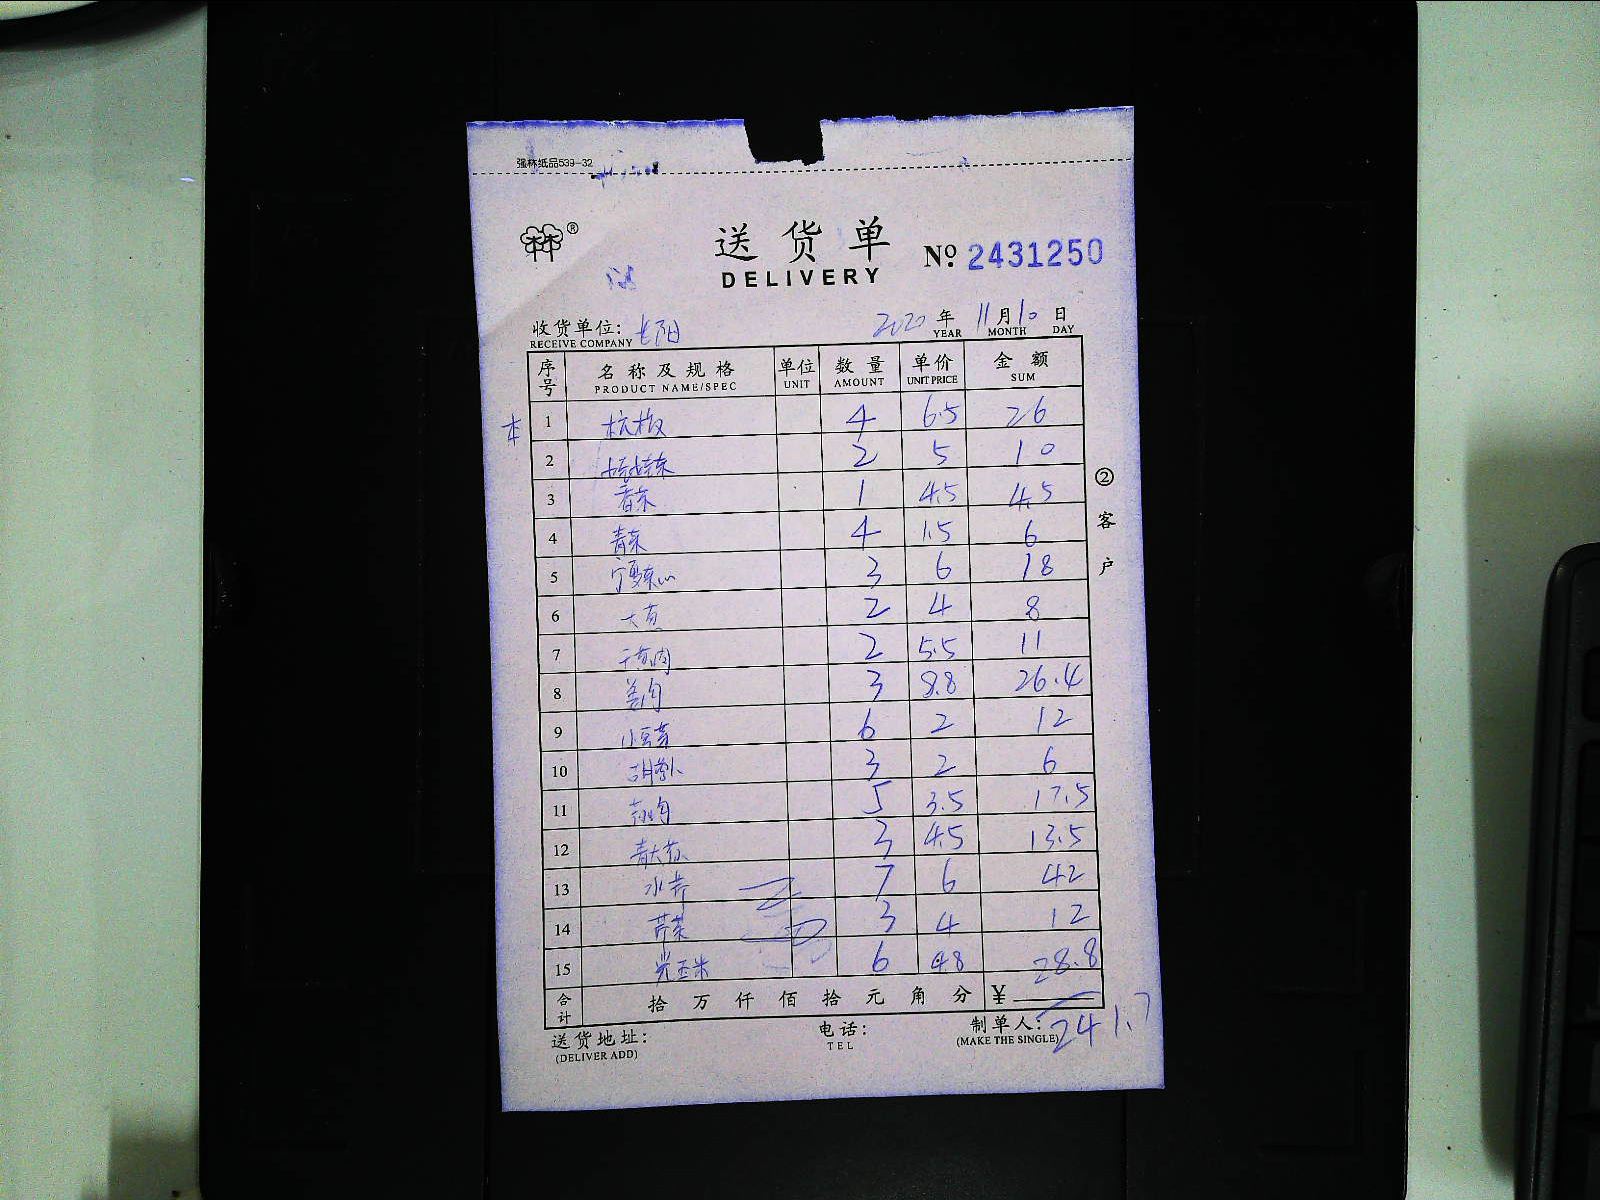 强林纸品539-32
林林®
送货单
DELIVERY
№ 2431250
收货单位: 七阳 2020 年 11 月 10 日
RECEIVE COMPANY YEAR MONTH DAY
序号 名称及规格 单位 数量 单价 金额
PRODUCT NAME/SPEC UNIT AMOUNT UNIT PRICE SUM
本
1 杭椒 4 6.5 26
2 2 5 10
3 香菜 1 4.5 4.5
4 青菜 4 1.5 6
5 宁夏菜心 3 6 18
6 大葱 2 4 8
7 2 5.5 11
8 姜肉 3 8.8 26.4
9 小豆芽 6 2 12
10 胡萝卜 3 2 6
11 5 3.5 17.5
12 青大 3 4.5 13.5
13 水芹 7 6 42
14 芹菜 3 4 12
15 玉米 6 4.8 28.8
合计 拾 万 仟 佰 拾 元 角 分 ¥
241.7
②客户
送货地址: 电话: 制单人:
(DELIVER ADD) TEL (MAKE THE SINGLE)